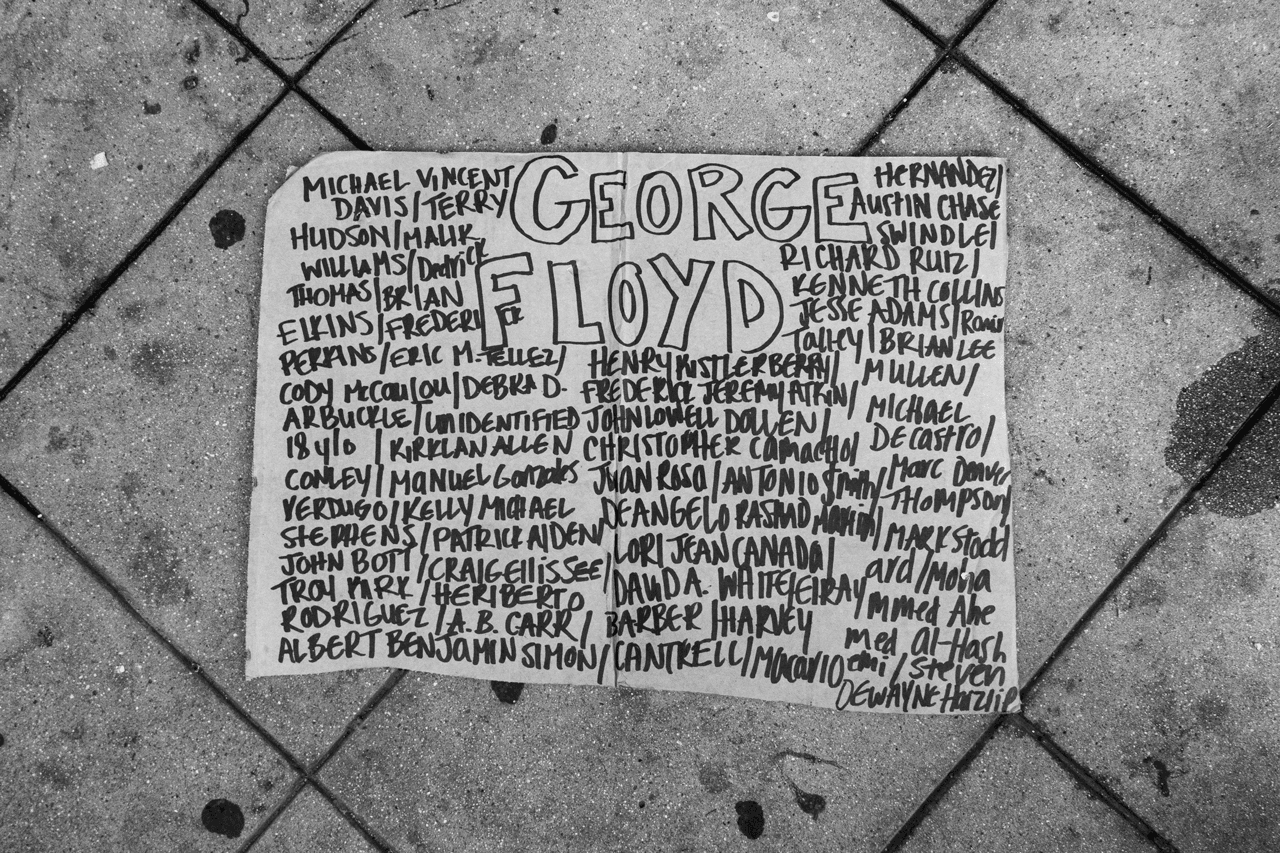 GEORGE
FLOYD
MICHAEL VINCENT
DAVIS/TERRY
HUDSON/MALIK
WILLIAMS/Dedrick
THOMAS/BRIAN
ELKINS/FREDERICK
PERKINS/ERIC M. TELLEZ/
CODY McCOULOU/DEBRA D.
ARBUCKLE/UNIDENTIFIED
18 y/o /KIRKLAN ALLEN
CONLEY/MANUEL Gonzales
VERDUGO/KELLY MICHAEL
STEPHENS/PATRICK AIDEN/
JOHN BOTT/CRAIG Ellis SEE/
TROY KIRK/HERIBERTO
RODRIGUEZ/A.B. CARR/
ALBERT BENJAMIN SIMON/
HENRY KISTLER BERRY/
FREDERICK JEREMY ATKIN/
JOHN LOWELL DOLLEN/
CHRISTOPHER Camacho/
JUAN ROSA/ANTONIO Smith/
DEANGELO RASHAD Martin/
LORI JEAN CANADA/
DAVID A. WHITE/EIRAY
BARBER/HARVEY
CANTRELL/Macario
HERNANDEZ/
AUSTIN CHASE
SWINDLE/
RICHARD RUIZ/
KENNETH COLLINS
JESSE ADAMS/
Talley/BRIAN LEE
MULLEN/
MICHAEL
DeCastro/
Marc Denver
THOMPSON/
MARK Stodd
ard/Moha
mmed Ahe
med Al-Hash
emi/Steven
DEWAYNE